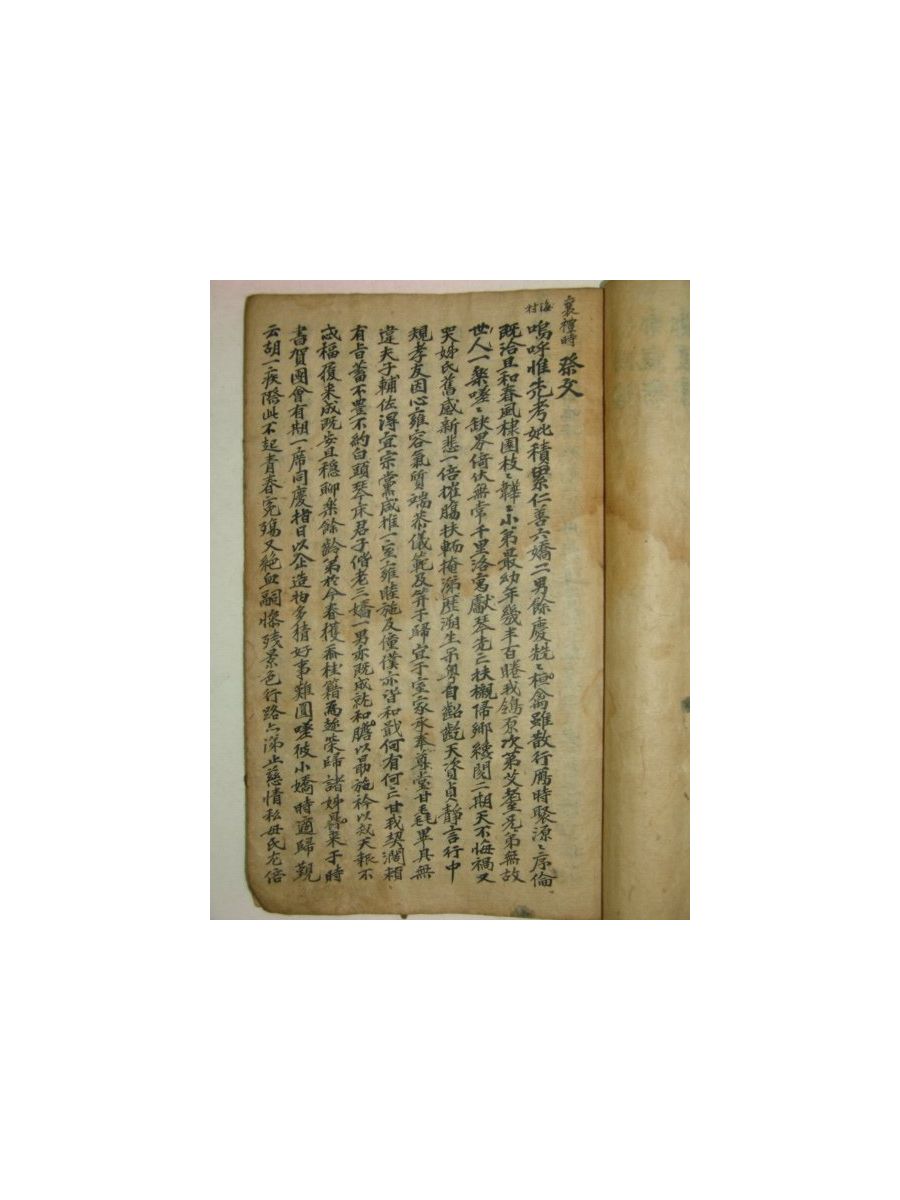 襄禮時 祭文
海村
嗚呼惟先考妣積累仁善六嬌二男餘慶兟〻楎翕雖散行鴈時聚源〻序倫
既洽且和春風棣園枝〻韡〻小弟最幼年幾半百睠我鴒原次第艾耋兄弟無故
世人一樂嗟〻缺界倚伏無常千里洛寓獻琴先亡扶櫬歸鄉綾閱二期天不悔禍又
哭姊氏舊感新悲一倍摧膓扶輀掩涕歷溯生平粤自齠齔天資貞靜言行中
規孝友因心雍容氣質端莊儀範及笄于歸宜于室家承奉尊堂甘毛畢具無
違夫子輔佐得宜宗黨咸推一室雍睦施及僮僕亦皆和戢何有何亡甘我契濶賴
有旨蓄不豊不約白頭琴床君子偕老三嬌一男亦既成就和膽以勗施衿以
忒福履来成既安且穩聊樂餘齡弟於今春穫 桂籍為趁榮歸諸姊 来于時
書賀團會有期一席同慶指日以企造物多猜好事難圓嗟彼小嬌時適歸覲
云胡一疾 此不起青春寃殤又絶血嗣慘殘景色行路亡涕止慈情私母氏尤倍